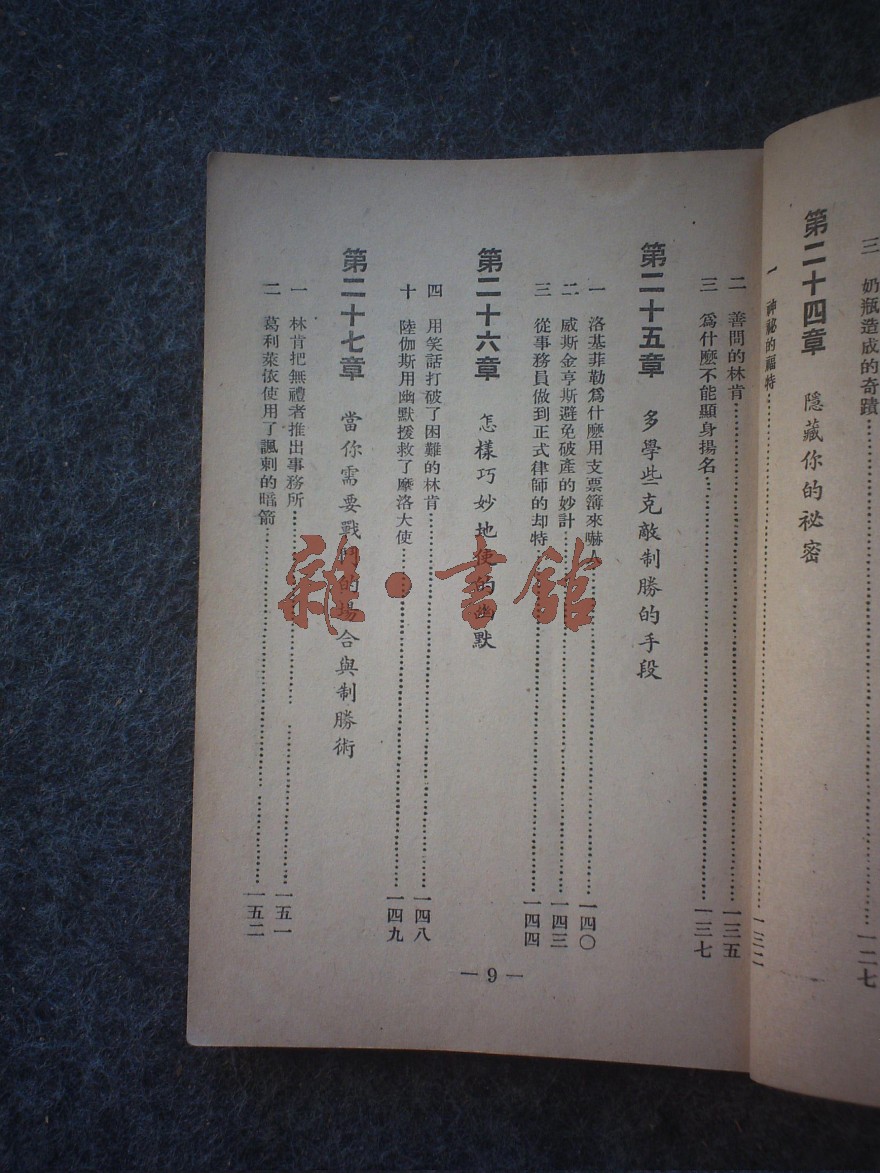 三　奶瓶造成的奇蹟……一二七
第二十四章　隱藏你的祕密
一　神祕的福特……一三二
二　善問的林肯……一三五
三　爲什麼不能顯身揚名……一三七
第二十五章　多學些克敵制勝的手段
一　洛基菲勒爲什麼用支票簿來嚇人……一四〇
二　威斯金亨斯避免破產的妙計……一四三
三　從事務員做到正式律師的却特……一四四
第二十六章　怎樣巧妙地使的幽默
四　用笑話打破了困難的林肯……一四八
十　陸伽斯用幽默援救了摩洛大使……一四九
第二十七章　當你需要戰鬥的場合與制勝術
一　林肯把無禮者推出事務所……一五一
二　葛利萊依使用了諷刺的暗箭……一五二
— 9 —
雜·書館